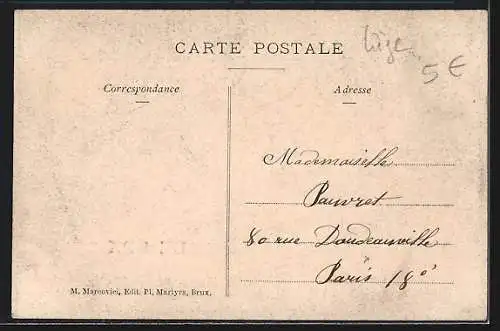 Liège
5 €
CARTE POSTALE
Correspondance
Adresse
Mademoiselle
Pauvret
80 rue Doudeauville
Paris 18e
M. Marcovici, Edit. Pl. Martyrs, Brux.